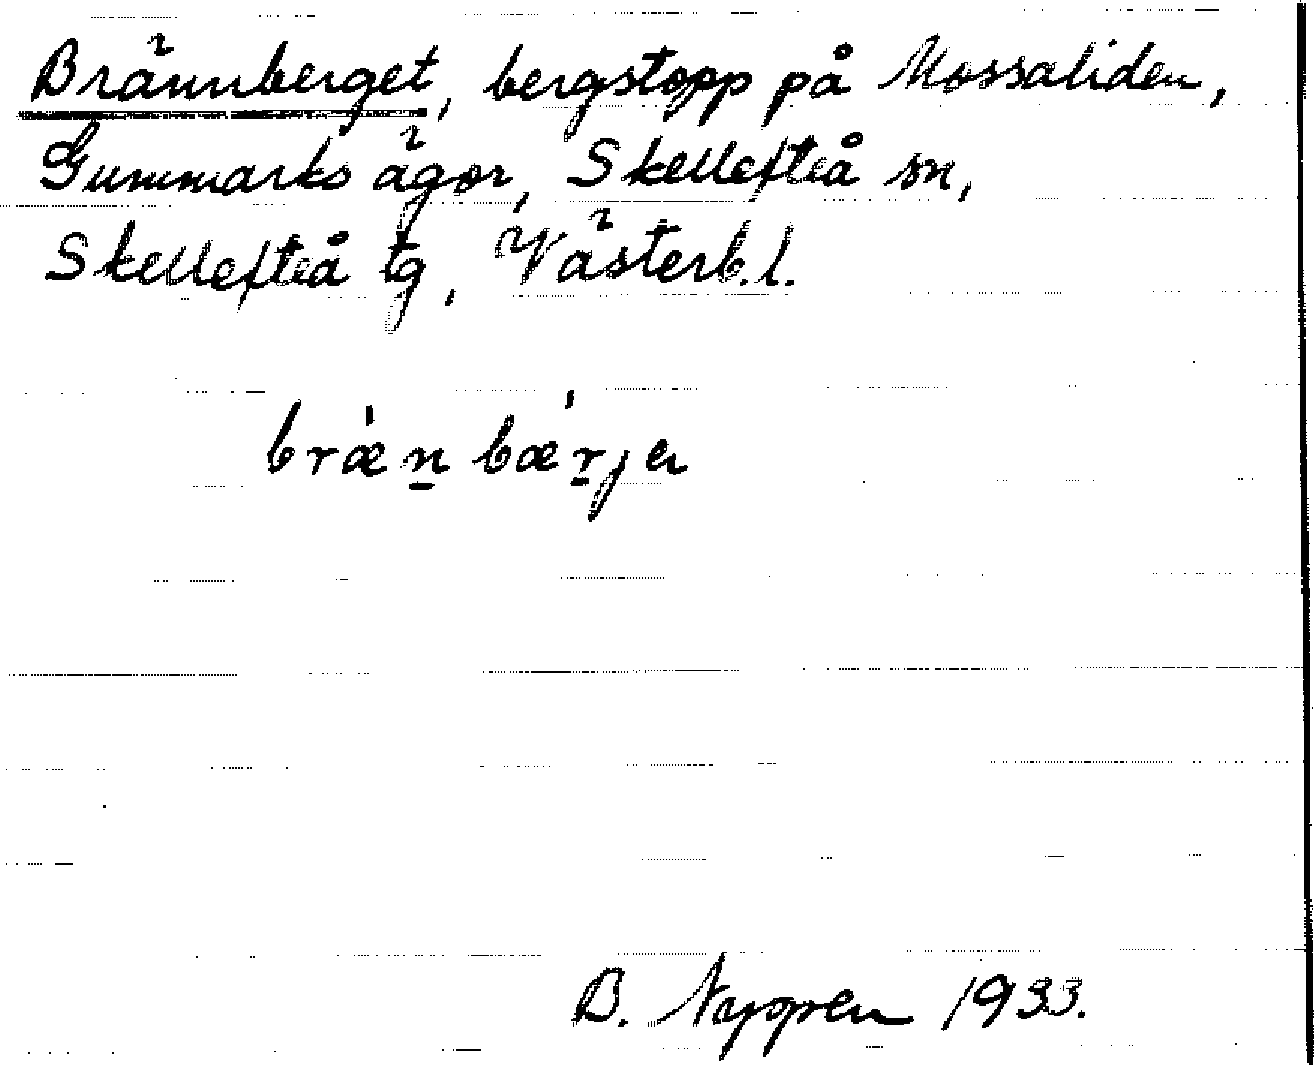 Brännberget, bergstopp på Mossaliden,
Gummarks ägor, Skellefteå sn,
Skellefteå tg, Västerb. l.
bræ̀n̠ bæ̀r̠jer
B. 1933.